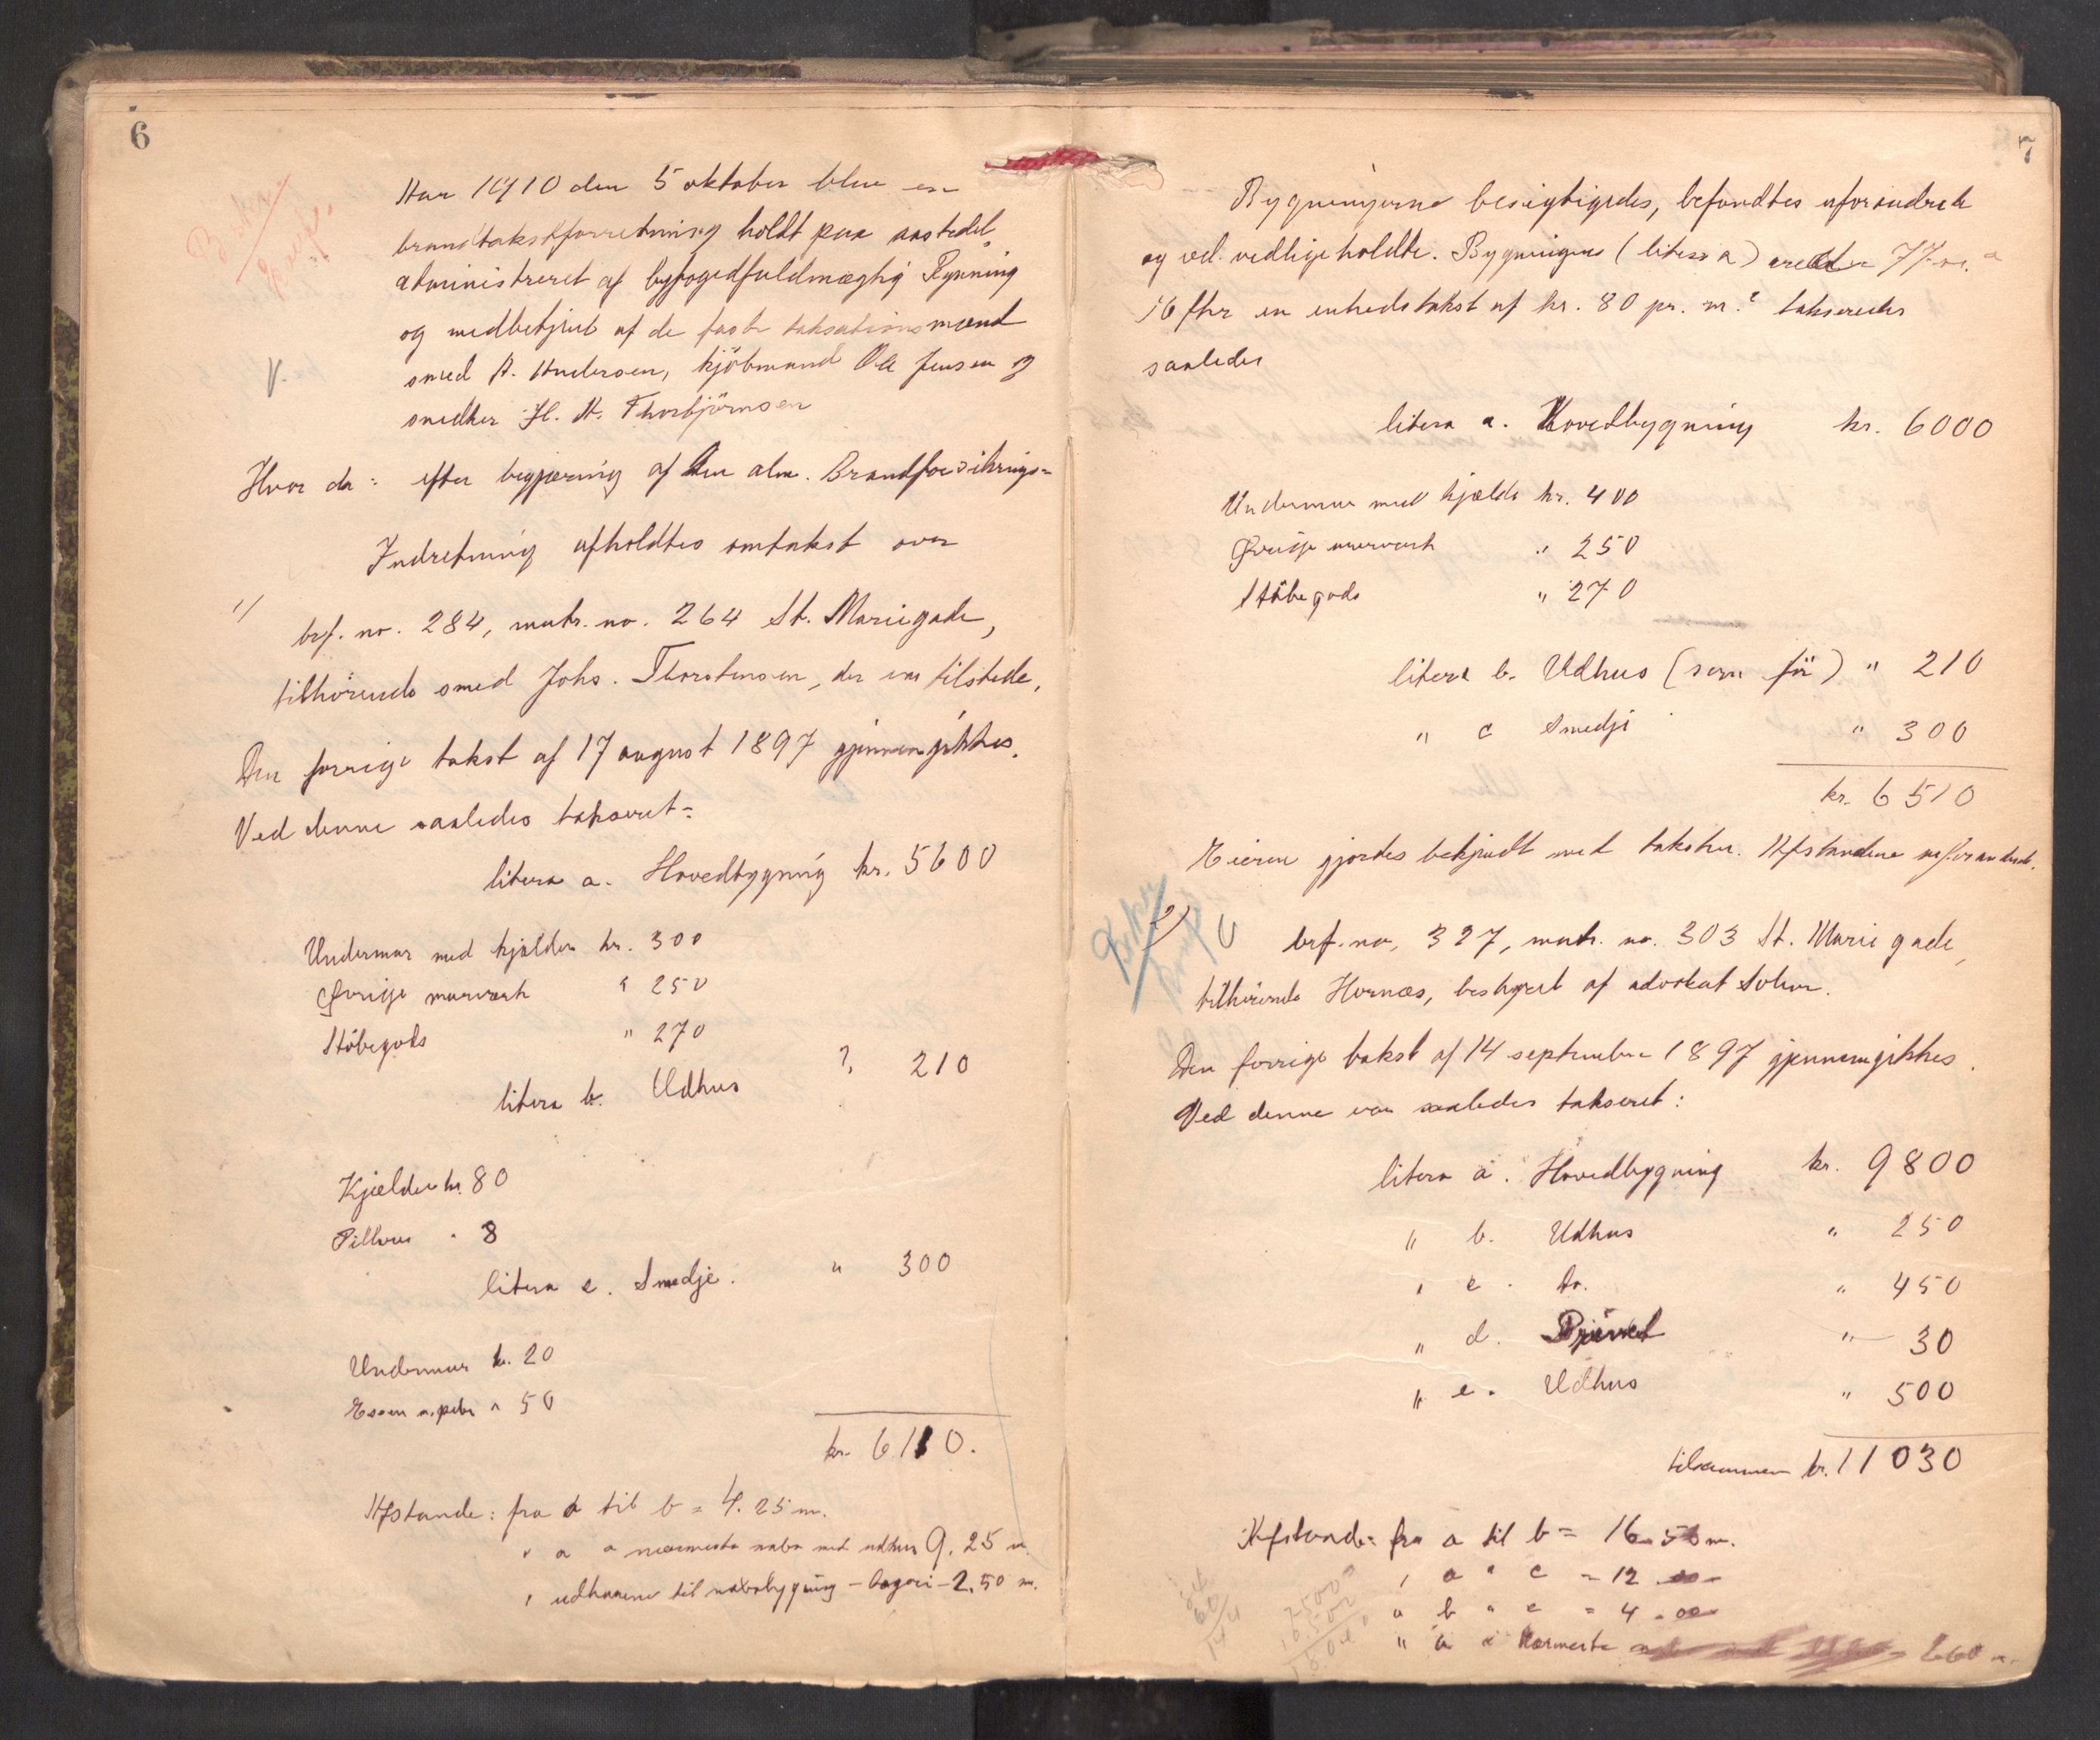 6
Aar 1910 den 5 oktober blev en
brandtakstforretning holdt paa aastedet,
administreret af byfogedfuldmægtig Rynning
og medbetjent af de faste taksationsmænd
smed A. Andersen, kjöbmand Ole Jensen og
snedker H. A. Thorbjörnsen
V.
Hvor da: efter begjæring af Den alm. Brandforsikrings-
Indretning afholdtes omtakst over
1/
brf. no. 284, matr. no. 264 St. Mariegade,
tilhörende smed Johs. Thorstensen, der var tilstede.
Den forrige takst af 17 august 1897 gjennemgikkes.
Ved denne saaledes taksert:
litera a. Hovedbygning kr. 5600
Undermur med kjælder kr. 300
Övrige murværk " 250
Stöbegods " 270
litera b. Udhus " 210
Kjælder kr. 80
" 8
litera c. Smedje. " 300
Undermur k. 20
Essen m. pibe " 50
kr. 6110.
Afstande: fra a til b = 4.25 m.
" a " nærmeste nabo med udhus 9.25 m.
" udhusene til nabobygning - bageri - 2.50 m.
7
Bygningerne besigtigedes, befandtes uforandrede
og vel vedligeholdte. Bygningen (litera a) 77 m.²
efter en enhedstakst af kr. 80 pr. m.² takseredes
saaledes
litera a. Hovedbygning kr. 6000
Undermur med kjælder kr. 400
Övrige murværk " 250
Stöbegods " 270
litera b. Udhus (som för) " 210
" c Smedje " 300
kr. 6510
Eieren gjordes bekjendt med taksten. Afstandene uforandrede.
2)
brf. no. 327, matr. no. 303 St. Mariegade,
tilhörende Hornæs, bestyret af advokat
Den forrige takst af 14 september 1897 gjennemgikkes.
Ved denne var saaledes taksert:
litera a. Hovedbygning kr. 9800
" b. Udhus " 250
" c. do. " 450
" d. " 30
" e. Udhus " 500
tilsammen kr. 11030
Afstande: fra a til b = 16.50 m.
" a " c = 12.00
" b " c = 4.00
" a " nærmeste 2.60 m.